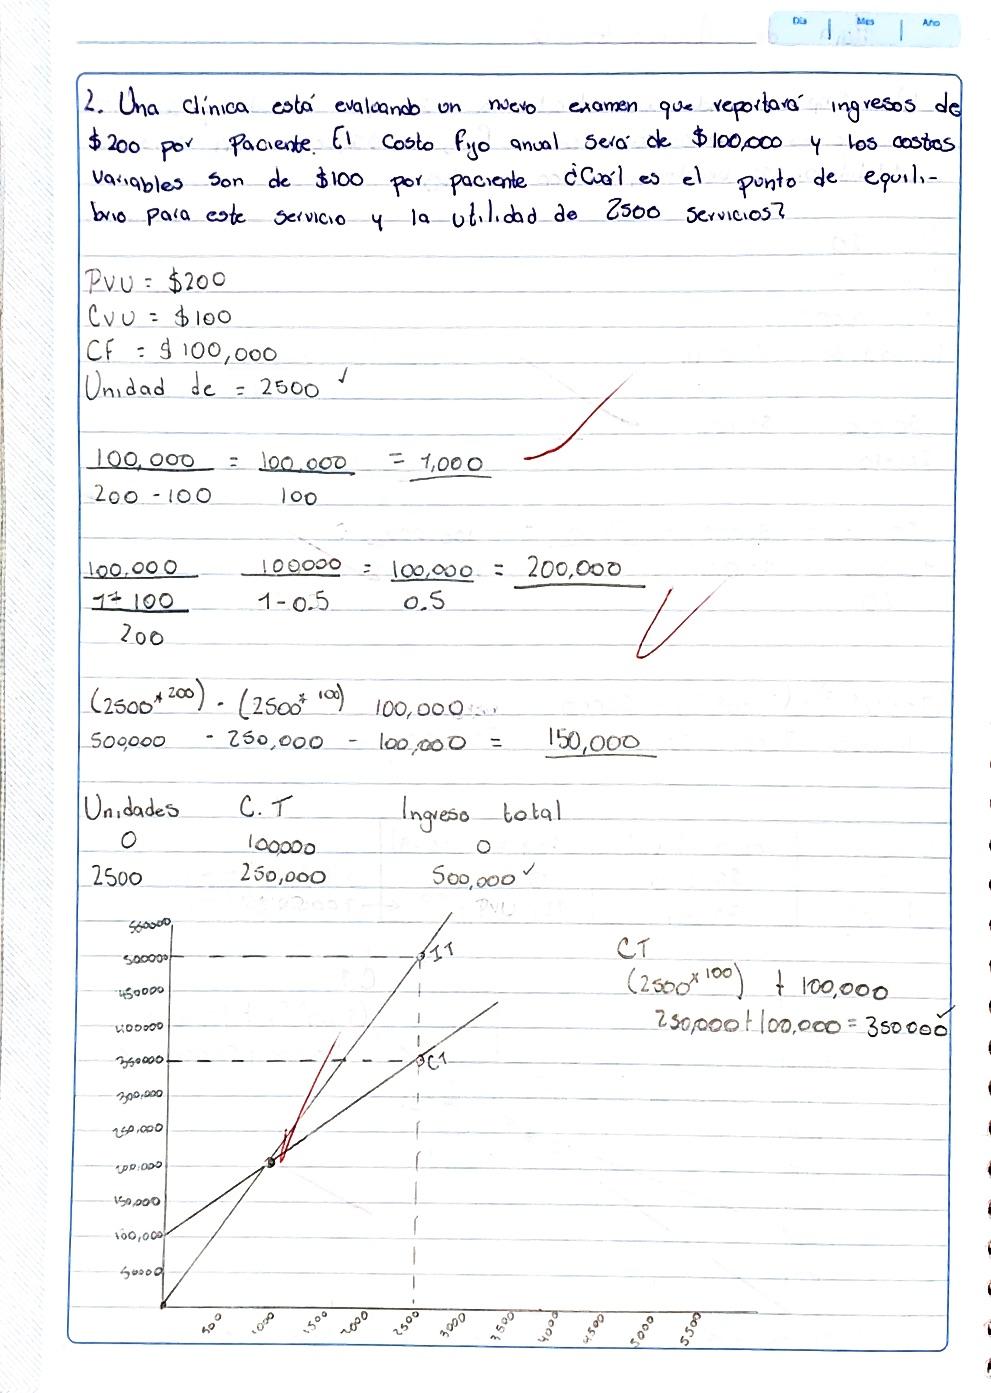 Día Mes Año
2. Una clínica está evaluando un nuevo examen que reportará ingresos de
$200 por Paciente. El costo fijo anual será de $100,000 y los costos
variables son de $100 por paciente ¿Cuál es el punto de equili-
brio para este servicio y la utilidad de 2500 servicios?
PVU = $200
CVU = $100
CF = $100,000
Unidad de = 2500 ✓
100,000 = 100.000 = 1,000
200 - 100 100
100.000 100000 = 100,000 = 200,000
1- 100 1-0.5 0.5
200
(2500*200) - (2500*100) 100,000
500,000 - 250,000 - 100,000 = 150,000
Unidades C.T Ingreso total
0 100000 0
2500 250,000 500,000 ✓
CT
(2500x100) + 100,000
250,000+100,000 = 350000 ✓
550000
500000 IT
450000
400000
350000 CT
300,000
250,000
200,000
150,000
100,000
50000
500 1000 1500 2000 2500 3000 3500 4000 4500 5000 5500